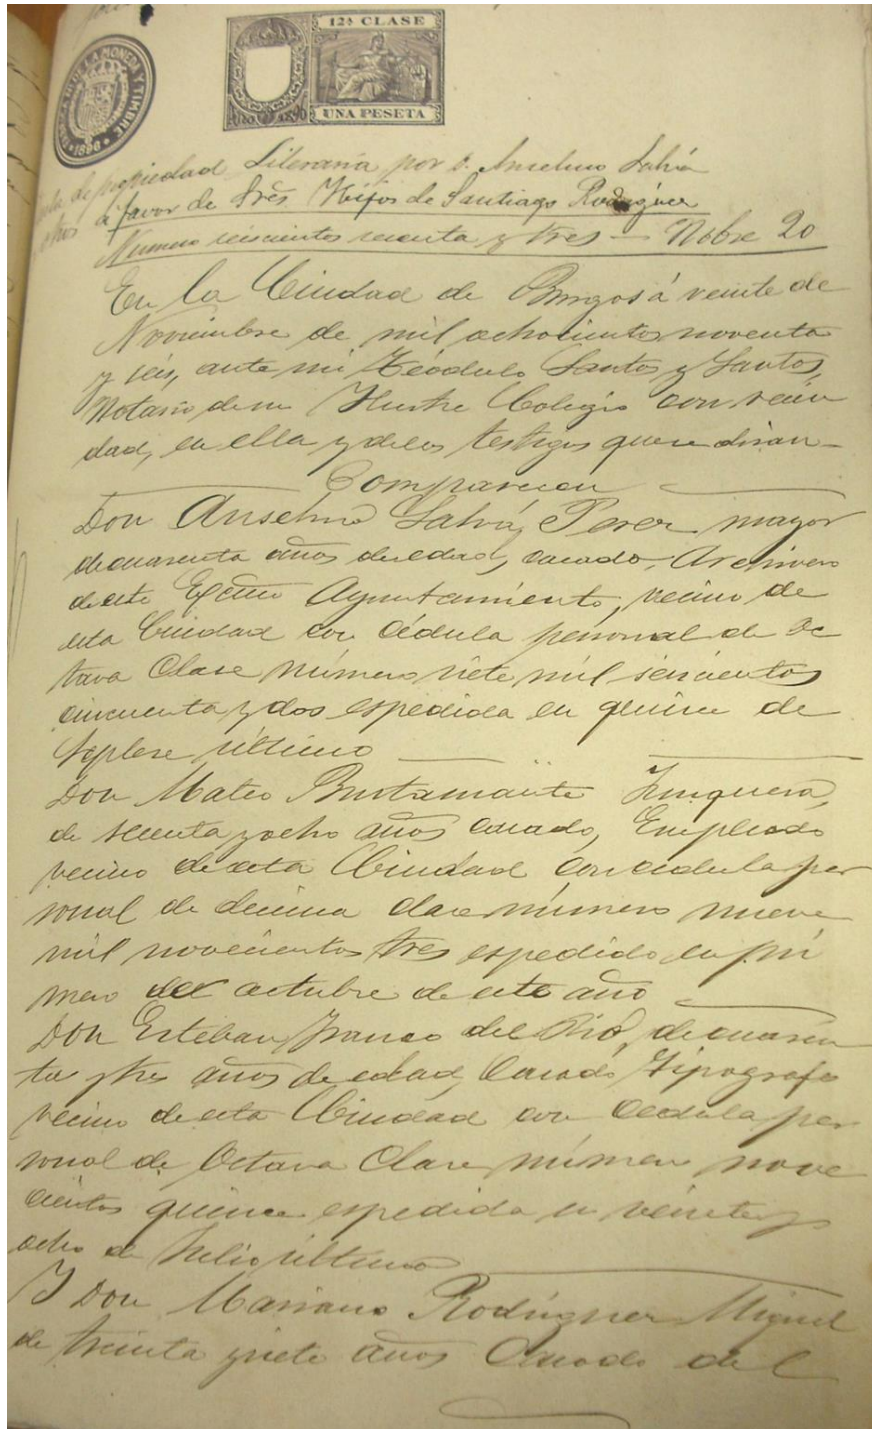 12ª CLASE
UNA PESETA
FABRICA NACIONAL DE LA MONEDA Y TIMBRE
1896
de propiedad Literaria por D. Anselmo Salvá
y otros á favor de Sres Hijos de Santiago Rodríguez
Numero seiscientos sesenta y tres — Nobre 20
En la Ciudad de Burgos á veinte de
Noviembre de mil ochocientos noventa
y seis, ante mi Teódulo Santos y Santos,
Notario de su Ilustre Colegio con vecin
dad, en ella y de los testigos que se dirán —
Comparecen
Don Anselmo Salvá Perez, mayor
de cuarenta años de edad, casado, Archivero
de este Excmo Ayuntamiento, vecino de
esta Ciudad con cédula personal de Oc
tava Clase número siete mil seiscientos
cincuenta y dos espedida en quince de
Sepbre último
Don Mateo Bustamante Junquera,
de sesenta y ocho años casado, Empleado
vecino de esta Ciudad con cedula per
sonal de decima clase número nueve
mil novecientos tres espedido en pri
mero de octubre de este año
Don Esteban Franco del Rió, de cuaren
ta y tres años de edad, Casado Tipografo
vecino de esta Ciudad con Cedula per
sonal de Octava Clase número nove
cientos quince espedida en veinte y
ocho de Julio último
Y Don Mariano Rodriguez Miguel
de treinta y siete años Casado del